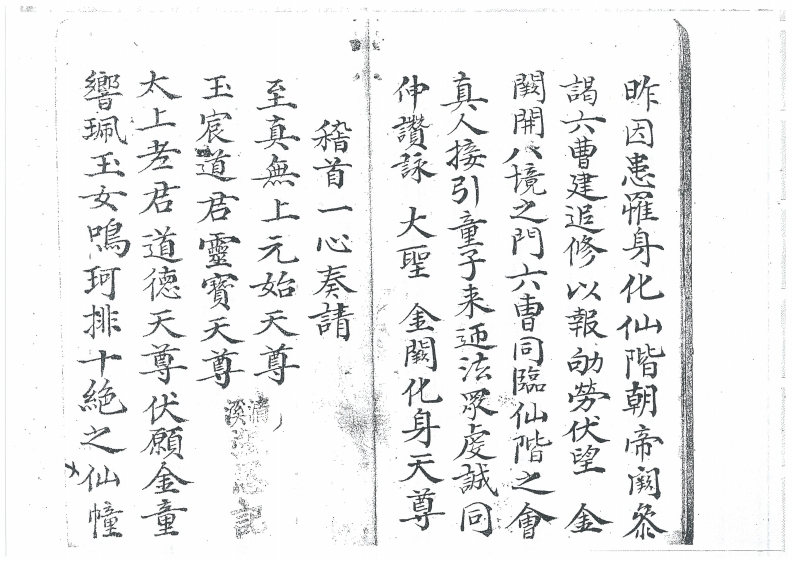 昨因患罹身化仙階朝帝闕叅
謁六曹建追修以報劬勞伏望　金
闕開八境之門六曹同臨仙階之會
真人接引童子来迎法眾虔誠同
伸讚詠　大聖　金闕化身天尊
稽首一心奏請
至真無上元始天尊
玉宸道君靈寶天尊
太上老君道德天尊伏願金童
響珮玉女鳴珂排十絶之仙幢